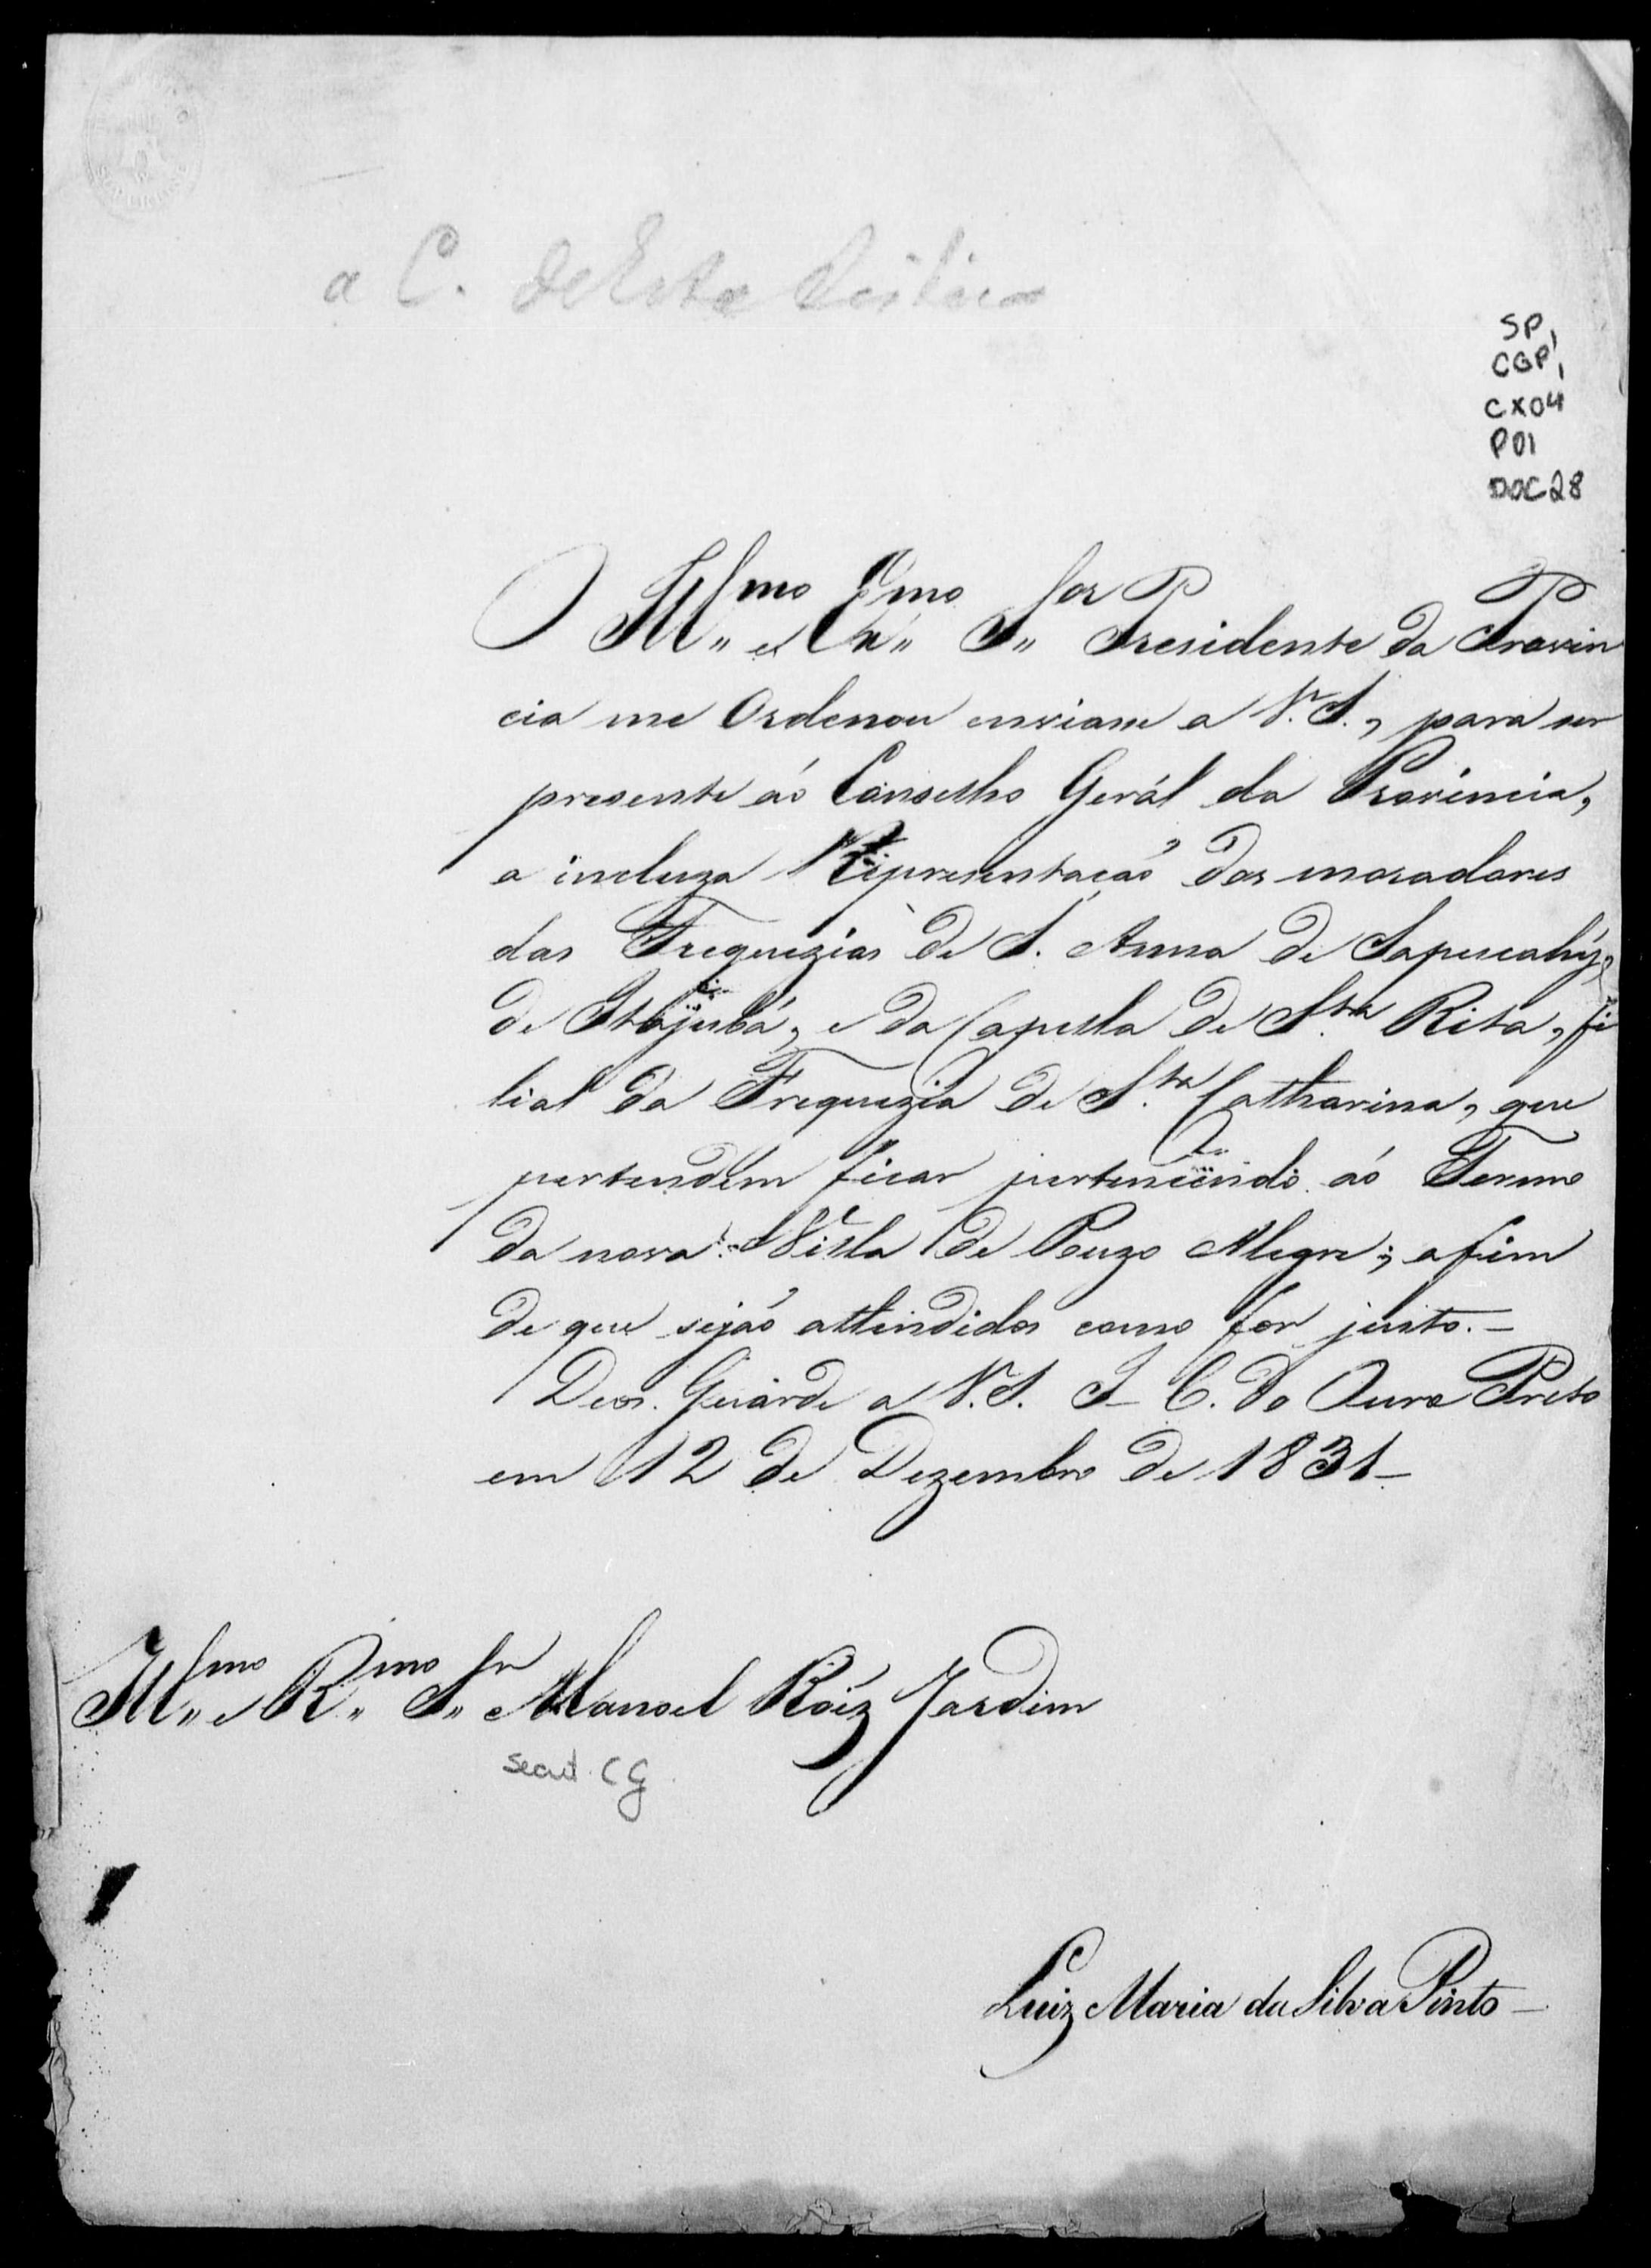 a C. de Estatistica
SP,
CGP,
CX04
P01
DOC28
O Illmo e Exmo Sor Presidente da Provin
cia me Ordenou enviasse a V. S., para ser
presente áo Conselho Gerál da Provincia,
a incluza Reprezentaçaõ dos moradores
das Freguezias de S. Anna de Sapucahÿ,
de Itajubá, e da Capella de Sta Rita, fi
lial da Freguezia de Sta Catharina, que
pertendem ficar pertencendo áo Termo
da nova Villa de Pouzo Alegre; afim
de que sejaõ attendidos como for justo. —
Deos Guarde a V. S. I. C. do Ouro Preto
em 12 de Dezembro de 1831 —
Illmo e Rmo Sr Manoel Roiz Jardim
Secret. CG
Luiz Maria da Silva Pinto —